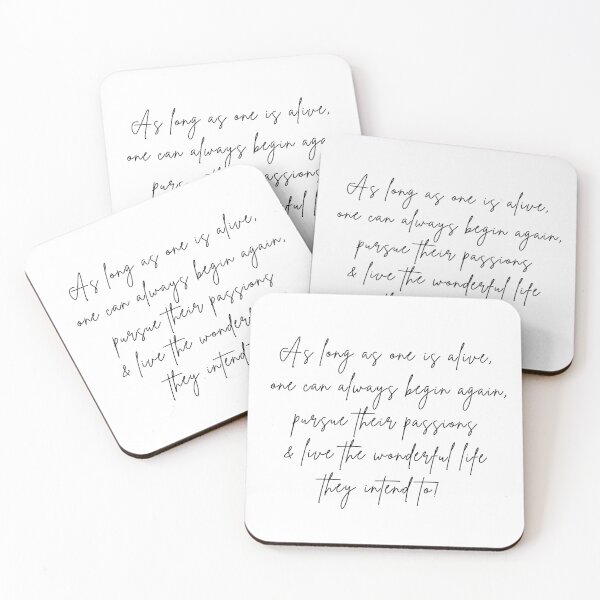 As long as one is alive,
one can always begin again,
pursue their passions
As long as one is alive,
one can always begin again,
pursue their passions
& live the wonderful life
As long as one is alive,
one can always begin again,
pursue their passions
& live the wonderful
they intend to
As long as one is alive,
one can always begin again,
pursue their passions
& live the wonderful life
they intend to!